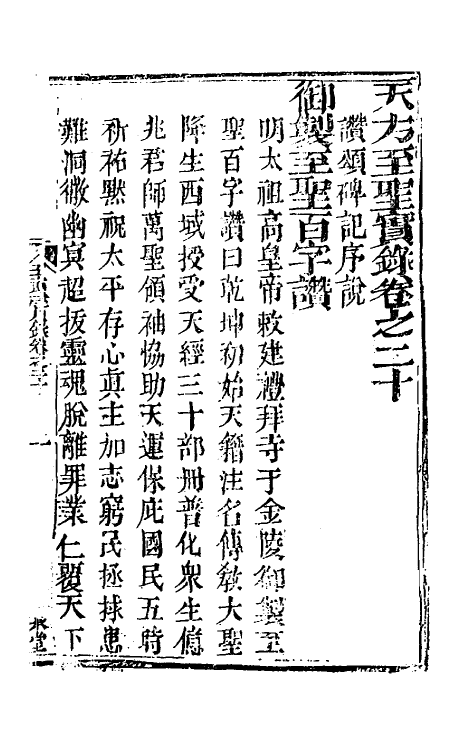 天方至聖實錄卷之二十
讚頌碑記序說
御製至聖百字讚
明太祖高皇帝敕建禮拜寺于金陵御製至
聖百字讚曰乾坤初始天籍注名傳敎大聖
降生西域授受天經三十部冊普化衆生億
兆君師萬聖領袖協助天運保庇國民五時
祈祐默祝太平存心眞主加志窮民拯捄患
難洞徹幽冥超拔靈魂脫離罪業仁覆天下
一